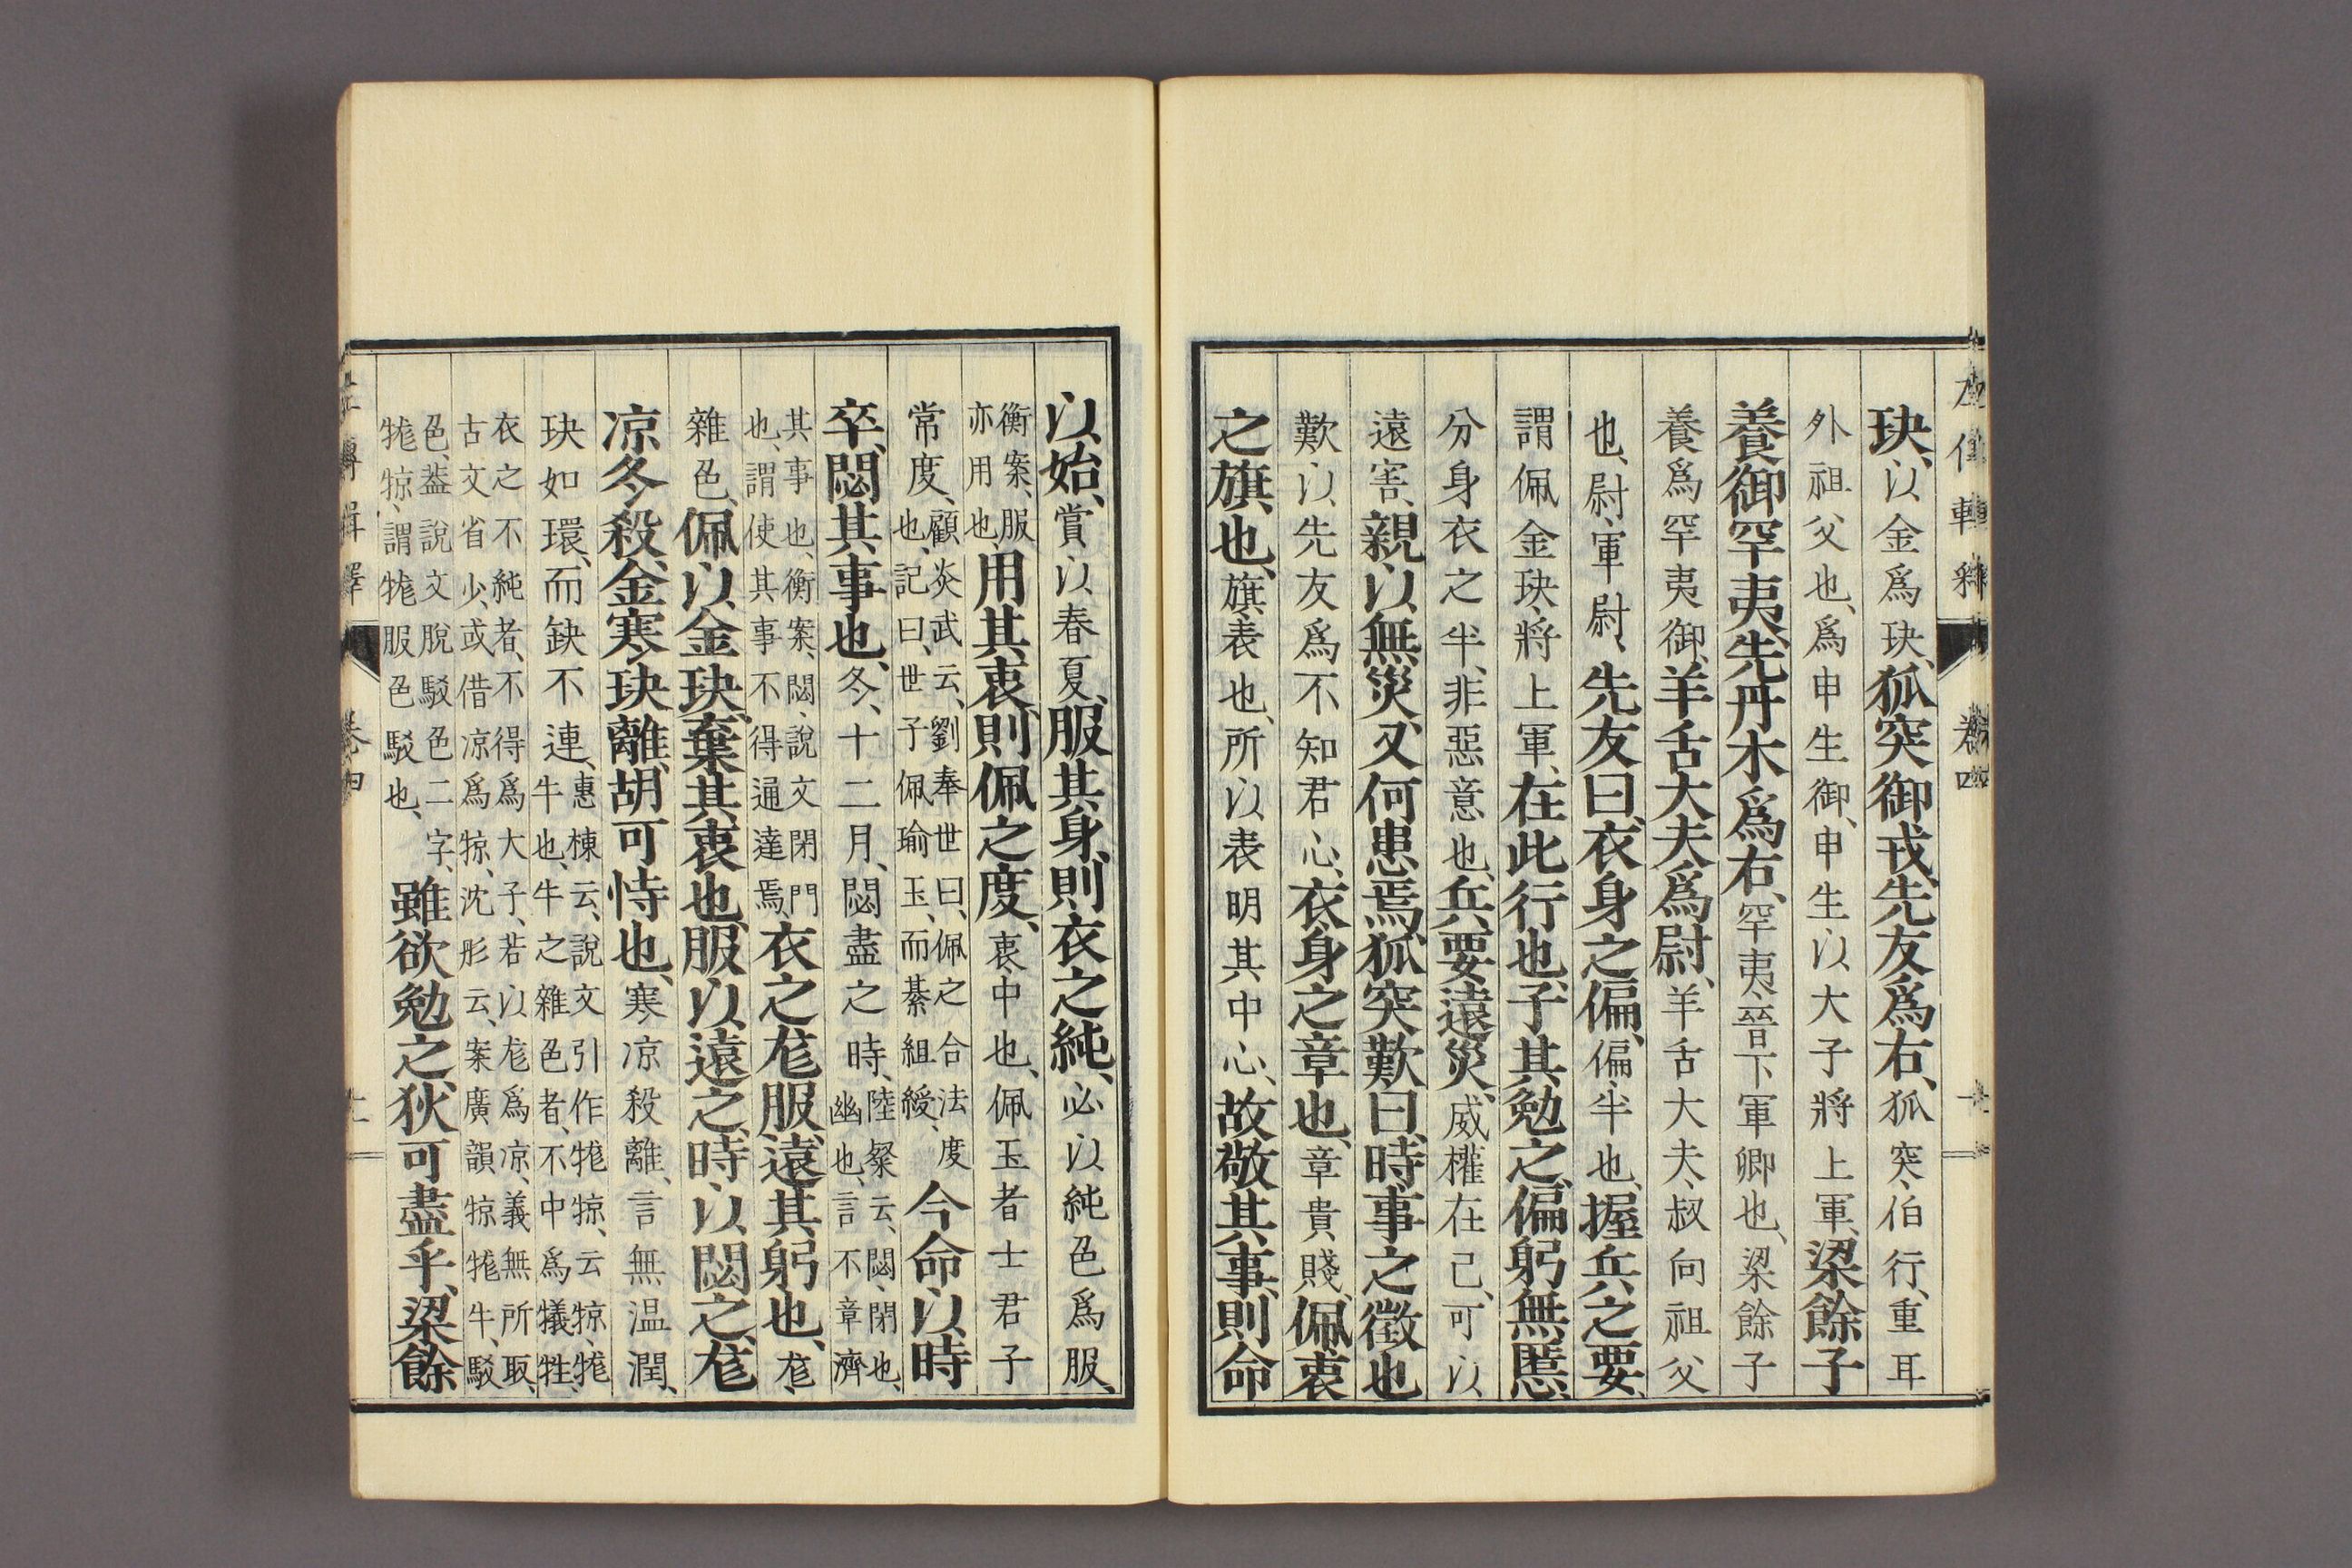 玦、以金爲玦、狐突御戎、先友爲右、狐突、伯行、重耳
外祖父也、爲申生御、申生以大子將上軍、梁餘子
養御罕夷、先丹木爲右、罕夷、晉下軍卿也、梁餘子
養爲罕夷御、羊舌大夫爲尉、羊舌大夫、叔向祖父
也、尉、軍尉、先友曰、衣身之偏、偏、半也、握兵之要、
謂佩金玦、將上軍、在此行也、子其勉之、偏躬無慝、
分身衣之半、非惡意也、兵要遠災、威權在己、可以
遠害、親以無災、又何患焉、狐突歎曰、時、事之徵也
歎以先友爲不知君心、衣、身之章也、章貴賤、佩、衷
之旗也、旗、表也、所以表明其中心、故敬其事、則命
以始、賞以春夏、服其身、則衣之純、必以純色爲服、
衡案、服
亦用也、
用其衷、則佩之度、衷、中也、佩玉者、士君子
常度、
顧炎武云、劉奉世曰、佩之合法度
也、記曰、世子佩瑜玉、而綦組綬、
今命以時
卒、閟其事也、冬十二月、閟盡之時、
陸粲云、閟、閉也、
幽也、言不章濟
其事也、衡案、閟、說文閉門
也、謂使其事不得通達焉、
衣之尨服、遠其躬也、尨、
雜色、佩以金玦、棄其衷也、服以遠之、時以閟之、尨
凉、冬殺、金寒、玦離、胡可恃也、寒凉殺離、言無温潤、
玦如環、而缺不連、
惠棟云、說文引作牻㹁、云㹁牻
牛也、牛之雜色者、不中爲犧牲、
衣之不純者、不得爲大子、若以尨爲凉、義無所取、
古文省少、或借凉爲㹁、沈彤云、案廣韻㹁牻牛、駁
色、葢說文脫駁色二字、
牻㹁、謂牻服色駁也、
雖欲勉之、狄可盡乎、梁餘
左傳輯釋 卷四